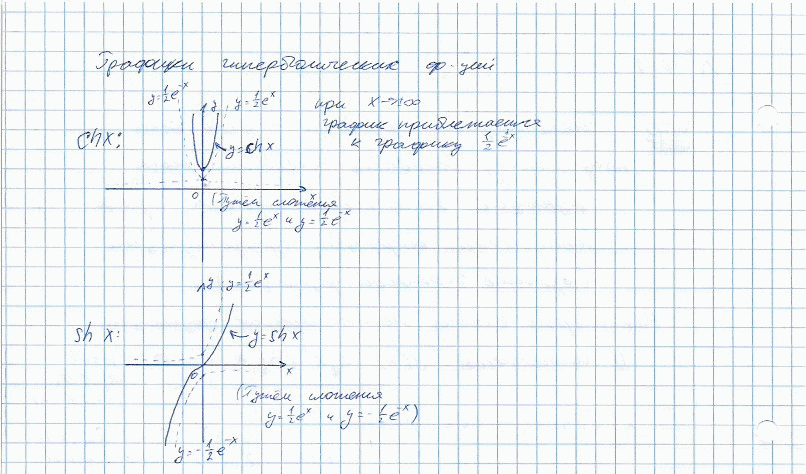 Графики гиперболических ф-ций
y=½e⁻ˣ
y
y=½eˣ
при x→+∞
график приближается
к графику ½eˣ
ch x:
y=ch x
0
x
(Путём сложения
y=½eˣ и y=½e⁻ˣ
y
y=½eˣ
sh x:
y=sh x
0
x
(Путём сложения
y=½eˣ и y=-½e⁻ˣ)
y=-½e⁻ˣ